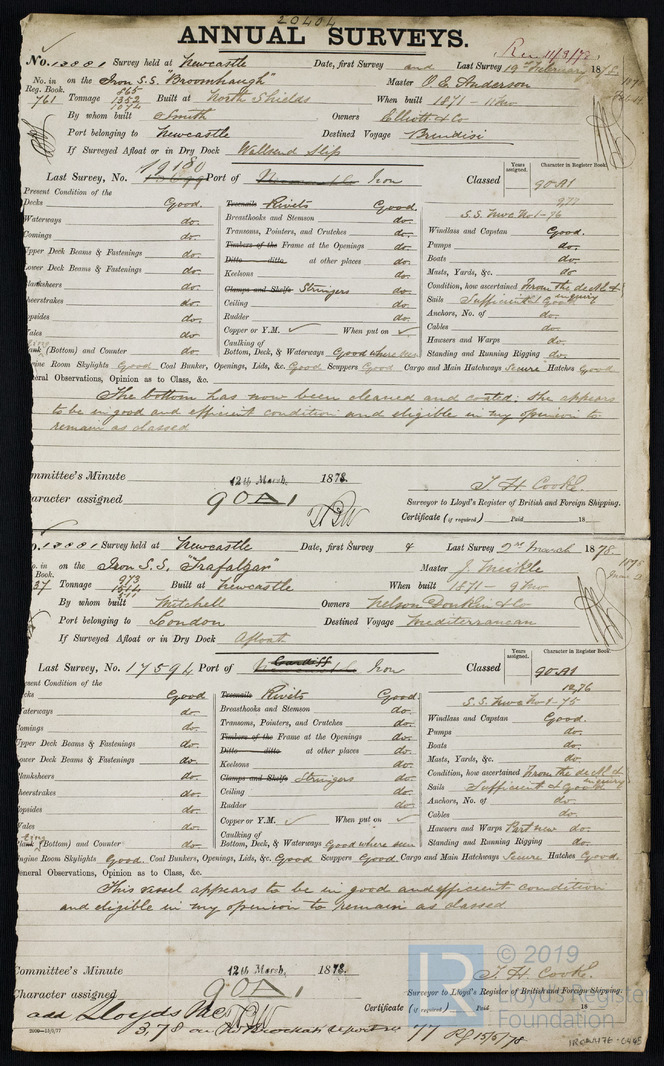 20404
ANNUAL SURVEYS.
No. 13881 Survey held at Newcastle Date, first Survey and Last Survey 19th February 1878
No. in Reg. Book. 761 on the Iron S.S. "Broomhaugh" Master O. E. Anderson
Tonnage 865 1352 1074 Built at North Shields When built 1871 - 11mo
By whom built Smith Owners Elliott & Co
Port belonging to Newcastle Destined Voyage Brindisi
If Surveyed Afloat or in Dry Dock Wallsend Slip
Last Survey, No. 19180 Port of Iron Classed Years assigned. Character in Register Book. 90A1
Present Condition of the
Decks Good. Treenails Rivets Good. S.S. Nwc No1-76
Waterways do. Breasthooks and Stemson do. Windlass and Capstan Good.
Comings do. Transoms, Pointers, and Crutches do. Pumps do.
Upper Deck Beams & Fastenings do. Timbers of the Frame at the Openings do. Boats do.
Lower Deck Beams & Fastenings do. Ditto ditto at other places do. Masts, Yards, &c. do
Planksheers do. Keelsons do. Condition, how ascertained From the deck & inquiry
Sheerstrakes do. Clamps and Shelfs Stringers do. Sails Sufficient & good
Topsides do. Ceiling do. Anchors, No. of do.
Wales do. Rudder do. Cables do.
Plank (Bottom) and Counter do. Copper or Y.M. ✓ When put on ✓ Hawsers and Warps do.
Caulking of Bottom, Deck, & Waterways Good where seen Standing and Running Rigging do.
Engine Room Skylights Good Coal Bunker, Openings, Lids, &c. Good Scuppers Good Cargo and Main Hatchways Secure Hatches Good
General Observations, Opinion as to Class, &c.
The bottom has now been cleaned and coated: She appears
to be in good and efficient condition and eligible in my opinion to
remain as classed
Committee's Minute 12th March, 1878.
Character assigned 90A1
T. H. Cooke.
Surveyor to Lloyd's Register of British and Foreign Shipping.
Certificate (if required) Paid 18
No. 13881 Survey held at Newcastle Date, first Survey & Last Survey 2nd March 1878
No. in Reg. Book. 37 on the Iron S.S. "Trafalgar" Master J. Meikle
Tonnage 973 Built at Newcastle When built 1871 - 9mo
By whom built Mitchell Owners Nelson Donkin & Co
Port belonging to London Destined Voyage Mediterranean
If Surveyed Afloat or in Dry Dock Afloat
Last Survey, No. 17594 Port of Cardiff Iron Classed Years assigned. Character in Register Book. 90A1
12,76
Present Condition of the
Decks Good Treenails Rivets Good S.S. Nwc No1-75
Waterways do. Breasthooks and Stemson do. Windlass and Capstan Good.
Comings do. Transoms, Pointers, and Crutches do. Pumps do.
Upper Deck Beams & Fastenings do. Timbers of the Frame at the Openings do. Boats do.
Lower Deck Beams & Fastenings do. Ditto ditto at other places do. Masts, Yards, &c. do.
Planksheers do. Keelsons do. Condition, how ascertained From the deck & inquiry
Sheerstrakes do. Clamps and Shelfs Stringers do. Sails Sufficient & good
Topsides do. Ceiling do. Anchors, No. of do.
Wales do. Rudder do. Cables do.
Plank (Bottom) and Counter do. Copper or Y.M. ✓ When put on ✓ Hawsers and Warps Part new do.
Caulking of Bottom, Deck, & Waterways Good where seen Standing and Running Rigging do.
Engine Room Skylights Good. Coal Bunkers, Openings, Lids, &c. Good Scuppers Good Cargo and Main Hatchways Secure Hatches Good.
General Observations, Opinion as to Class, &c.
This vessel appears to be in good and efficient condition
and eligible in my opinion to remain as classed
Committee's Minute 12th March, 1878.
Character assigned 90A1
T. H. Cooke.
Surveyor to Lloyd's Register of British and Foreign Shipping.
Certificate (if required) Paid 18
add Lloyds MC
3,78 on 77 15/5/78
2000-13/6/77
© 2019
Lloyd's Register
Foundation